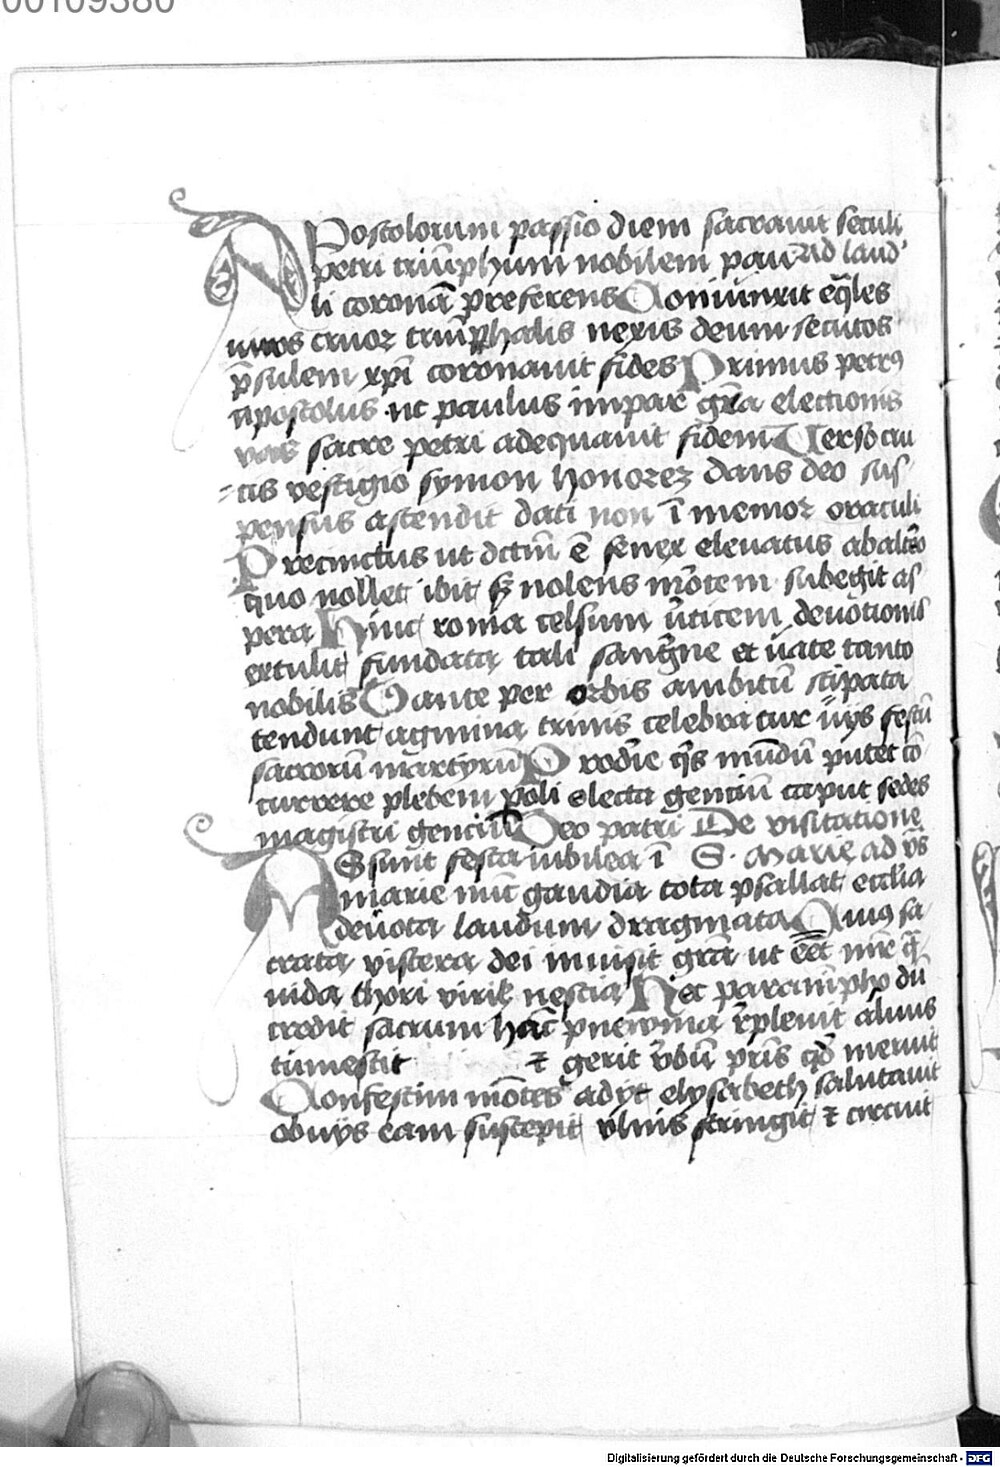 00109380
APostolorum passio diem sacrauit seculi
petri triūphum nobilem pau Ad laud'
li coronā preferens Coniunxit eq̄les
uiros cruor triūphalis nexus deum secutos
p̄sulem xpi coronauit fides Primus petrꝰ
apostolus nc paulus impar gr̄a electionis
vas sacre petri adequauit fidem Verso cru
=cis vestigio symon honorez dans deo sus
pensus astendit dati non ī memor oraculi
Precinctus ut dctm̄ ē senex eleuatus abaltō
quo nollet ibit sꝫ nolens mōtem subegit as
pera Hinc roma celsum v̄ticem deuotionis
extulit fundata tali sanḡne et uate tanto
nobilis Tante per orbis ambitū stipata
tendunt agmina trinis celebratur uijs festū
sacrorū martyrū Prodire q̄s mūdū putet cō
currere plebem poli electa gentiū caput sedes
magistri genciū Deo patri De visitatione
ASsunt festa iubilea ī S. Marie ad v̄s
marie nūc gaudia tota psallat ecclia
deuota laudum dragmata Cuiꝰ sa
crata viscera dei inuisit gr̄a ut eēt mr̄ q̄
uida thori virilꝭ nescia Hec paranīpho dū
credit sacrum hāc pneuma r̄pleuit aluus
tumescit ⁊ gerit v̄bū pr̄is qd̄ meruit
Confestim mōtes adijt elysabeth salutauit
obuijs eam suscepit vlnis stringit ⁊ circuit
Digitalisierung gefördert durch die Deutsche Forschungsgemeinschaft - DFG